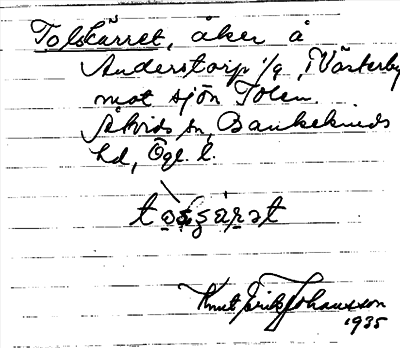 Tolskärret, åker å
Anderstorp 1/9, i Västerby
mot sjön Tolen.
Åtvids sn, Bankekinds
hd, Ögl. l.
Knut Erik Johansson
1935